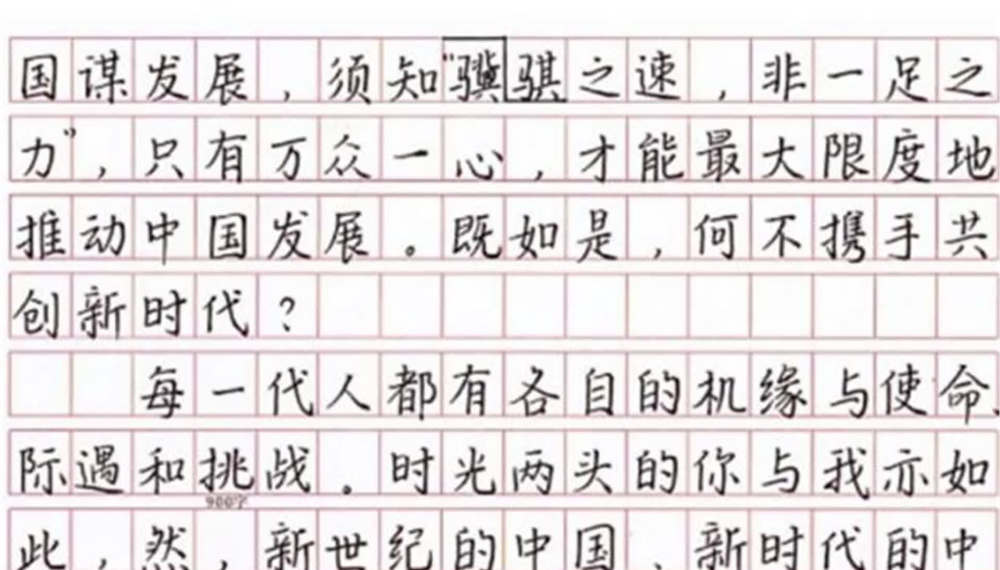 国谋发展，须知“骥骐之速，非一足之
力”，只有万众一心，才能最大限度地
推动中国发展。既如是，何不携手共
创新时代？
每一代人都有各自的机缘与使命、
际遇和挑战。时光两头的你与我亦如
900字
此，然，新世纪的中国、新时代的中